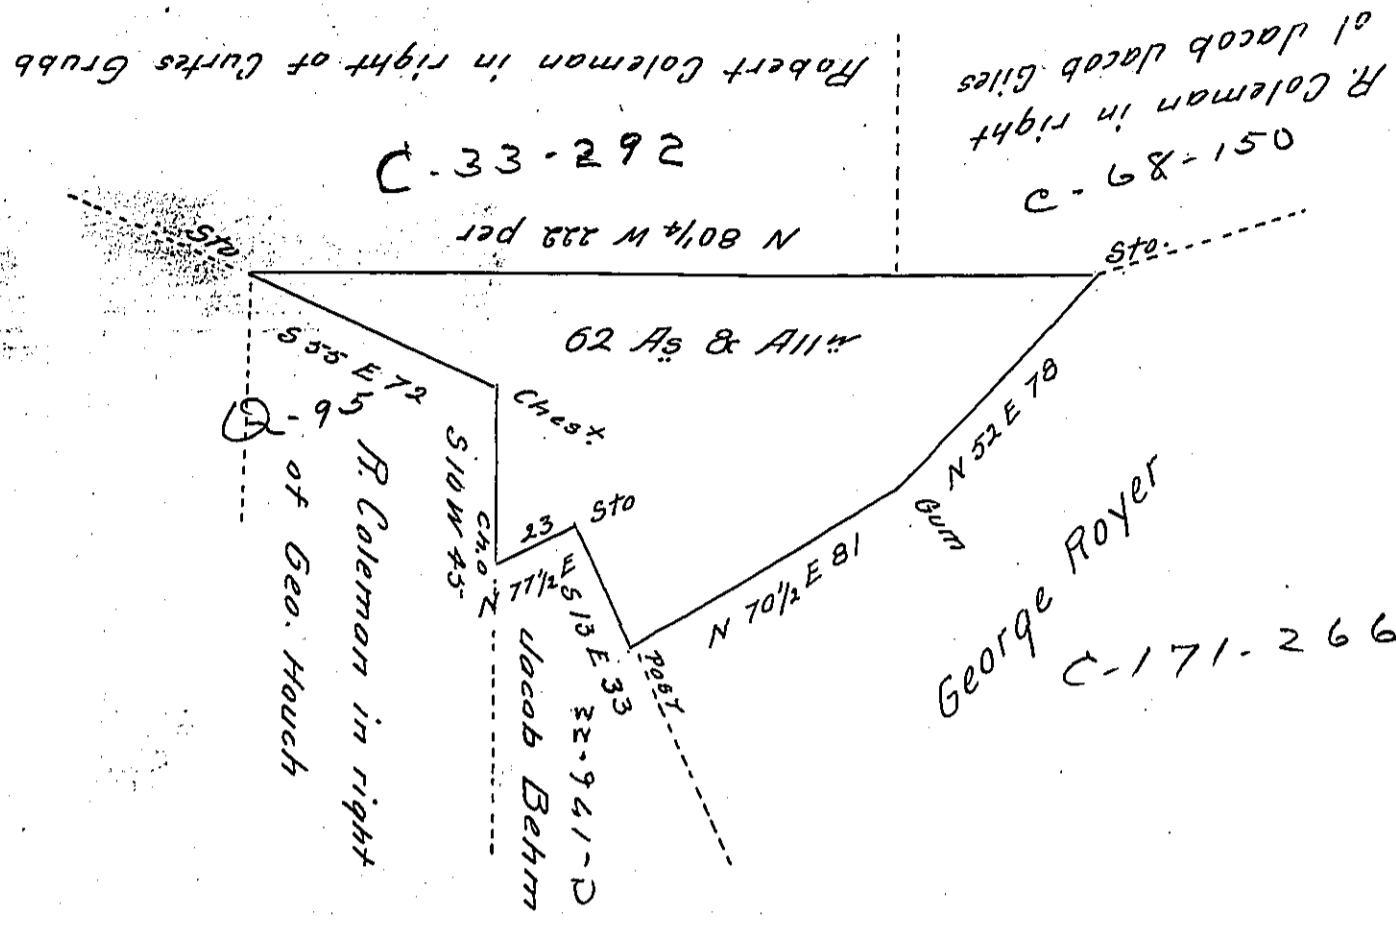 Robert Coleman in right of Curtes Grubb
C-33-292
R. Coleman in right
of Jacob Jacob Giles
C-68-150
N 80¼ W 222 per
Sto
Sto.
62 As & All
S 55 E 72
Chest.
Q-95
R. Coleman in right
of Geo. Houch
S 10 W 45
Ch.O
N 77½ E 23
Sto
S 13 E 33
Post
Jacob Behm
N 70½ E 81
Gum
N 52 E 78
George Royer
C-171-266